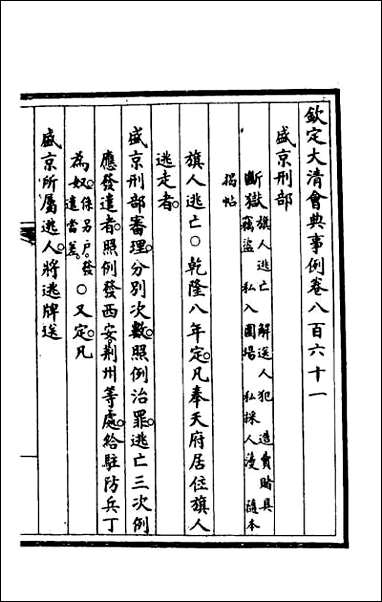 欽定大清會典事例卷八百六十一
盛京刑部
斷獄旗人逃亡 解送人犯 造賣賭具
竊盜 私入圍場 私採人蓡 題本
揭帖
旗人逃亡○乾隆八年定。凡奉天府居住旗人
逃走者。
盛京刑部審理。分別次數。照例治罪。逃亡三次例
應發遣者。照例發西安。荊州等處。給駐防兵丁
為奴。係另戶。發遣當差。○又定。凡
盛京所屬逃人。將逃牌送